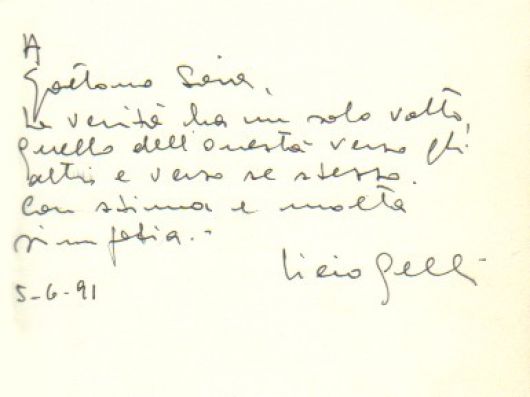 A
Gaetano
La verità ha un solo volto,
quello dell'onestà verso gli
altri e verso se stesso.
Con stima e molta
simpatia.-
Licio Gelli
5-6-91